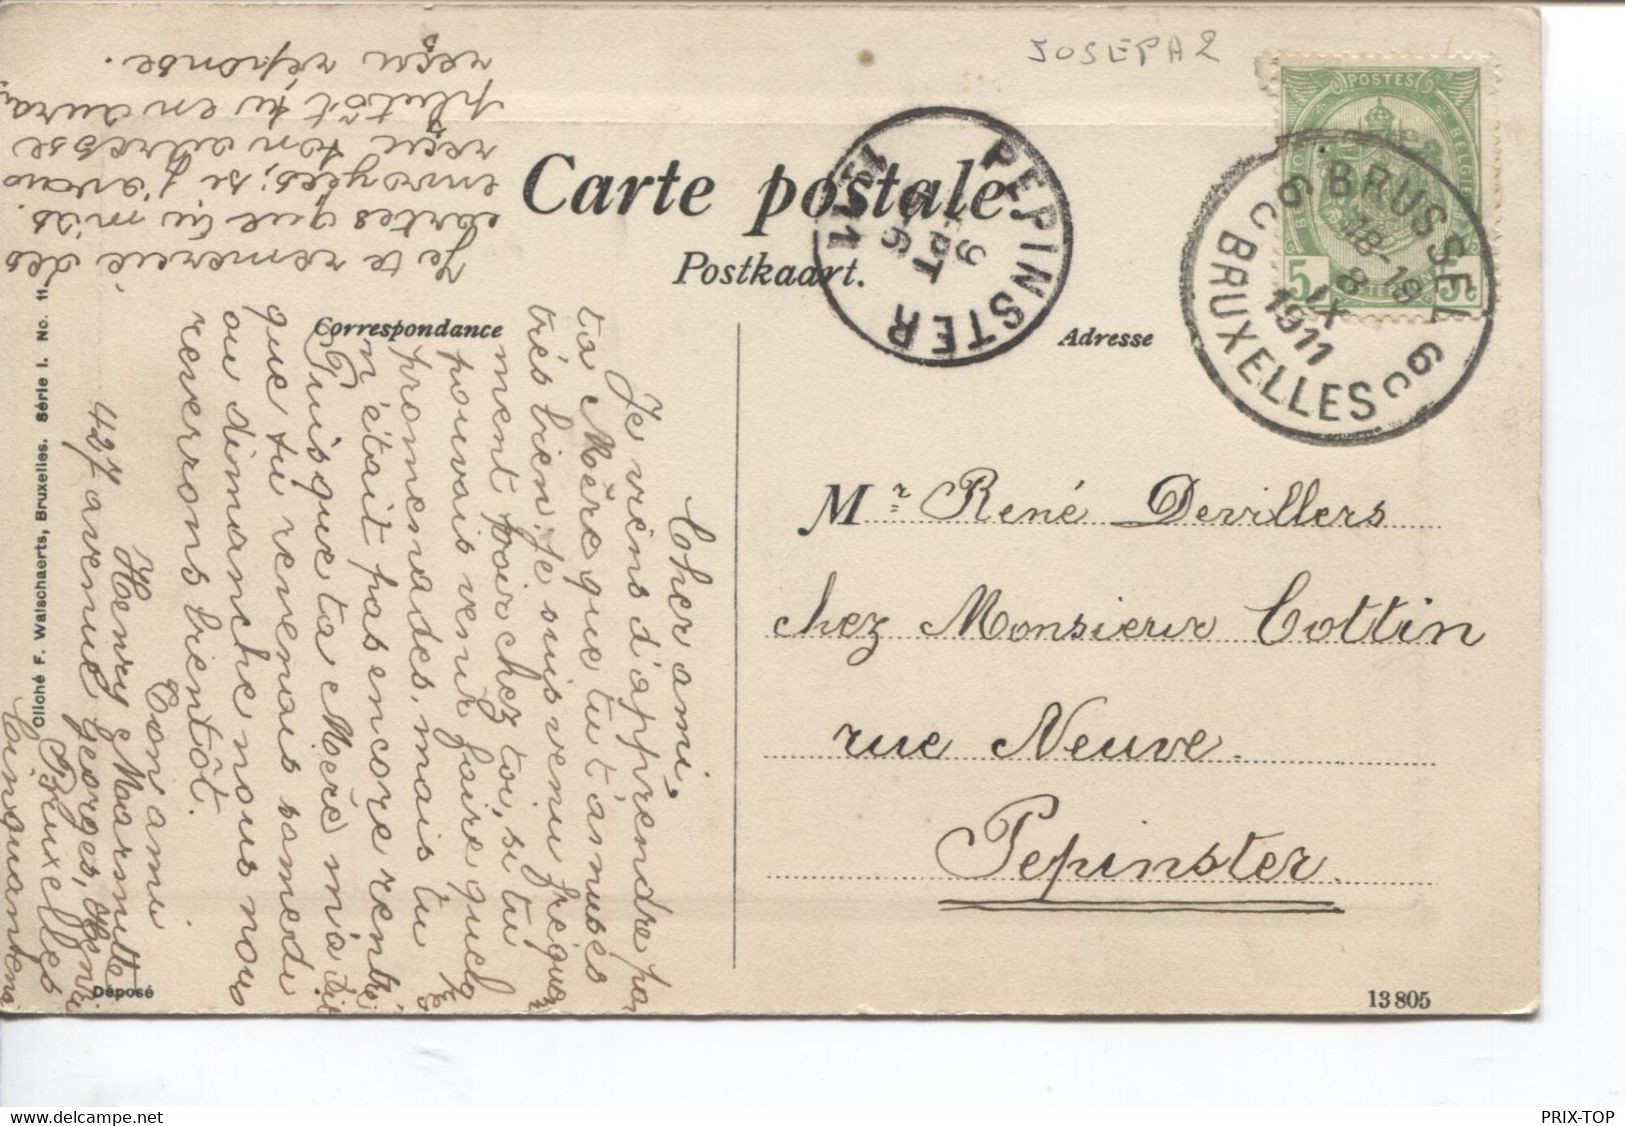 JOSEPA 2
Carte postale.
Postkaart.
Correspondance
Adresse
POSTES
5c
BRUSSEL 6c
18-19
8
IX
1911
BRUXELLES 6c
PEPINSTER
9
SEPT
6
1911
Mr René Devillers
chez Monsieur Cottin
rue Neuve.
Pepinster.
Cher ami,
Je viens d'apprendre par
ta Mère que tu t'amuses
très bien. Je suis venu
ment voir chez toi, si tu
pouvais venir faire quelq
promenades, mais tu
n'était pas encore rentré
Puisque ta Mère m'a dit
que tu revenais samedi
ou dimanche nous nous
reverrons bientôt.
Ton ami
Henry Marmitte
427 avenue Georges Henri
Bruxelles
Cinquantenai
Je te remercie des
cartes que tu m'as
envoyées; si j'avais
reçu ton adresse
plutôt tu en aurais
reçu réponse.
Cliché F. Walschaerts, Bruxelles. Série I. No. 11.
Déposé
13805
PRIX-TOP